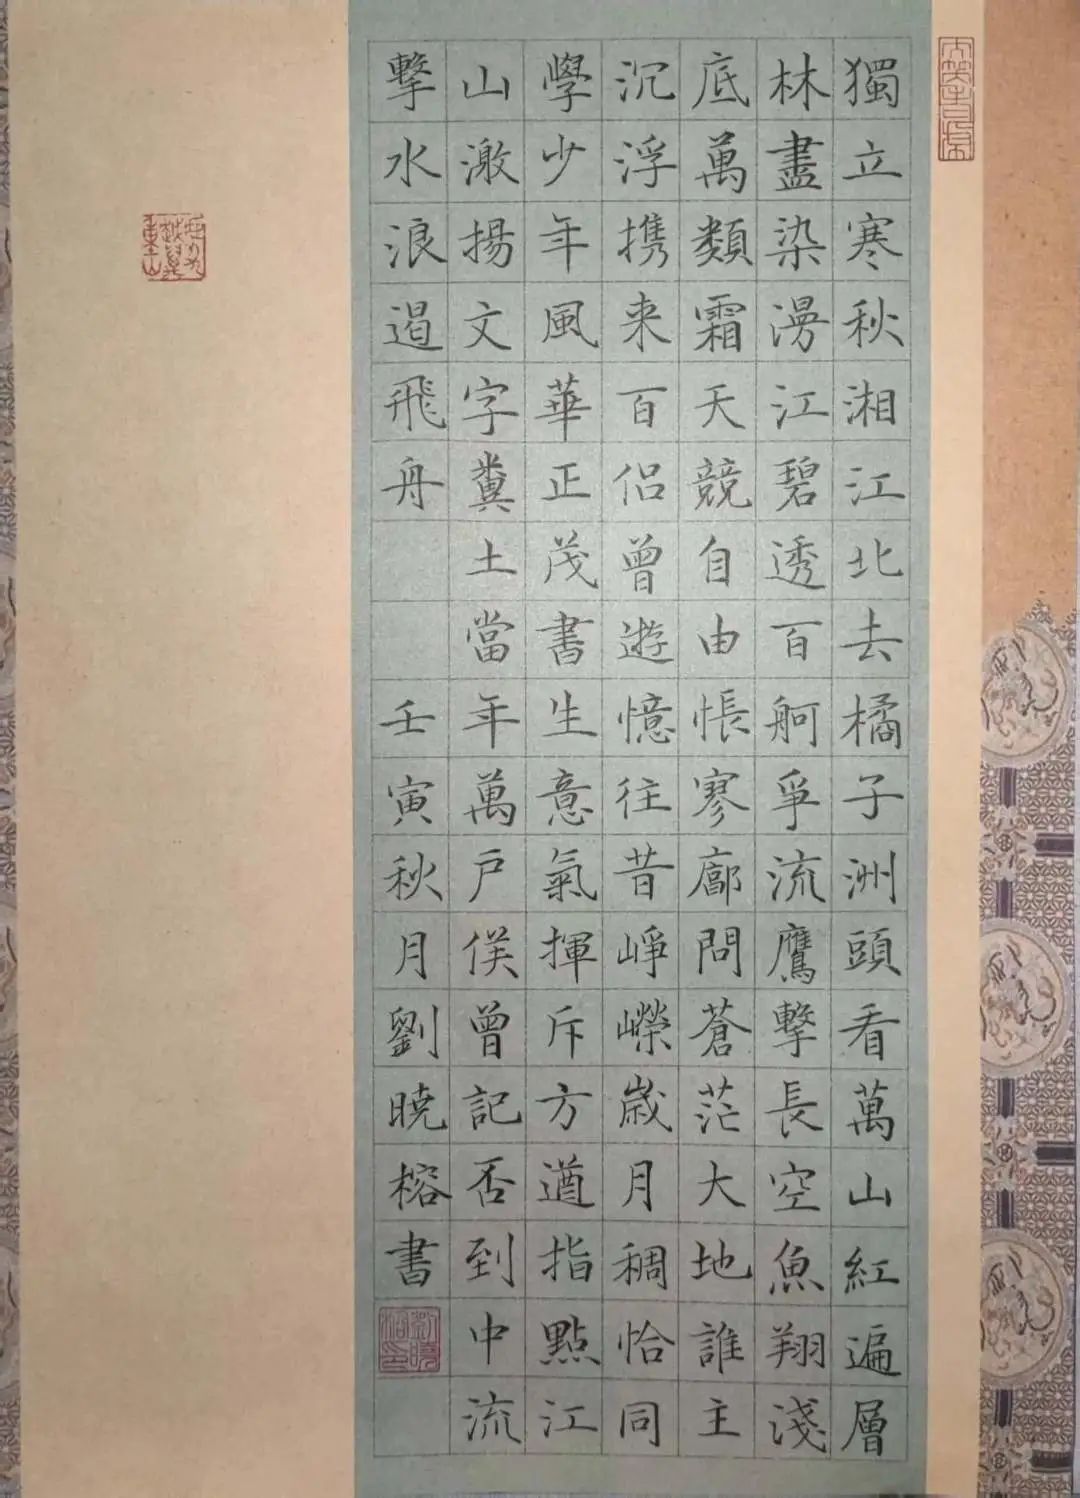 獨立寒秋湘江北去橘子洲頭看萬山紅遍層
林盡染漫江碧透百舸爭流鷹擊長空魚翔淺
底萬類霜天競自由悵寥廓問蒼茫大地誰主
沉浮携来百侶曾遊憶往昔崢嶸歲月稠恰同
學少年風華正茂書生意氣揮斥方遒指點江
山激揚文字糞土當年萬戶侯曾記否到中流
擊水浪遏飛舟　　壬寅秋月劉曉榕書
劉曉榕印